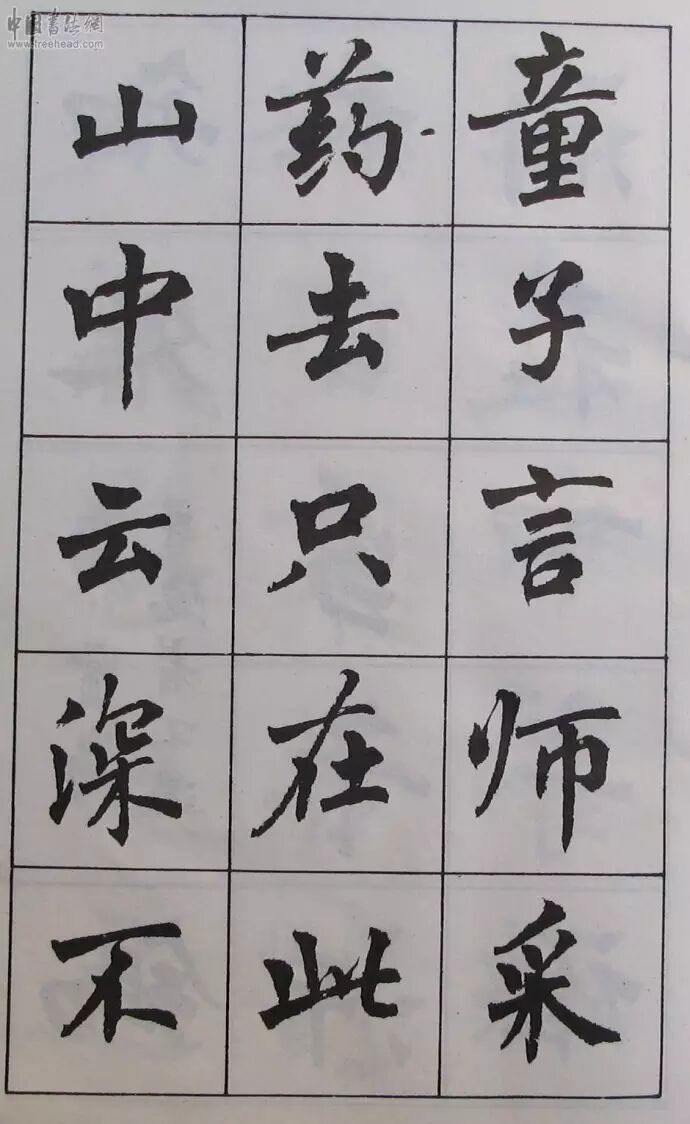 中国书法網
www.freehead.com
童子言师采
药去只在此
山中云深不